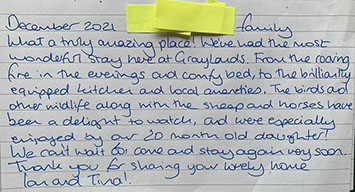 December 2021 family
What a truly amazing place! We've had the most
wonderful stay here at Graylands. From the roaring
fire in the evenings and comfy bed, to the brilliantly
equipped kitchen and local amenities. The birds and
other wildlife along with the sheep and horses have
been a delight to watch, and were especially
enjoyed by our 20 month old daughter!
We can't wait to come and stay again very soon.
Thank you for sharing your lovely home
Ian and Tina!